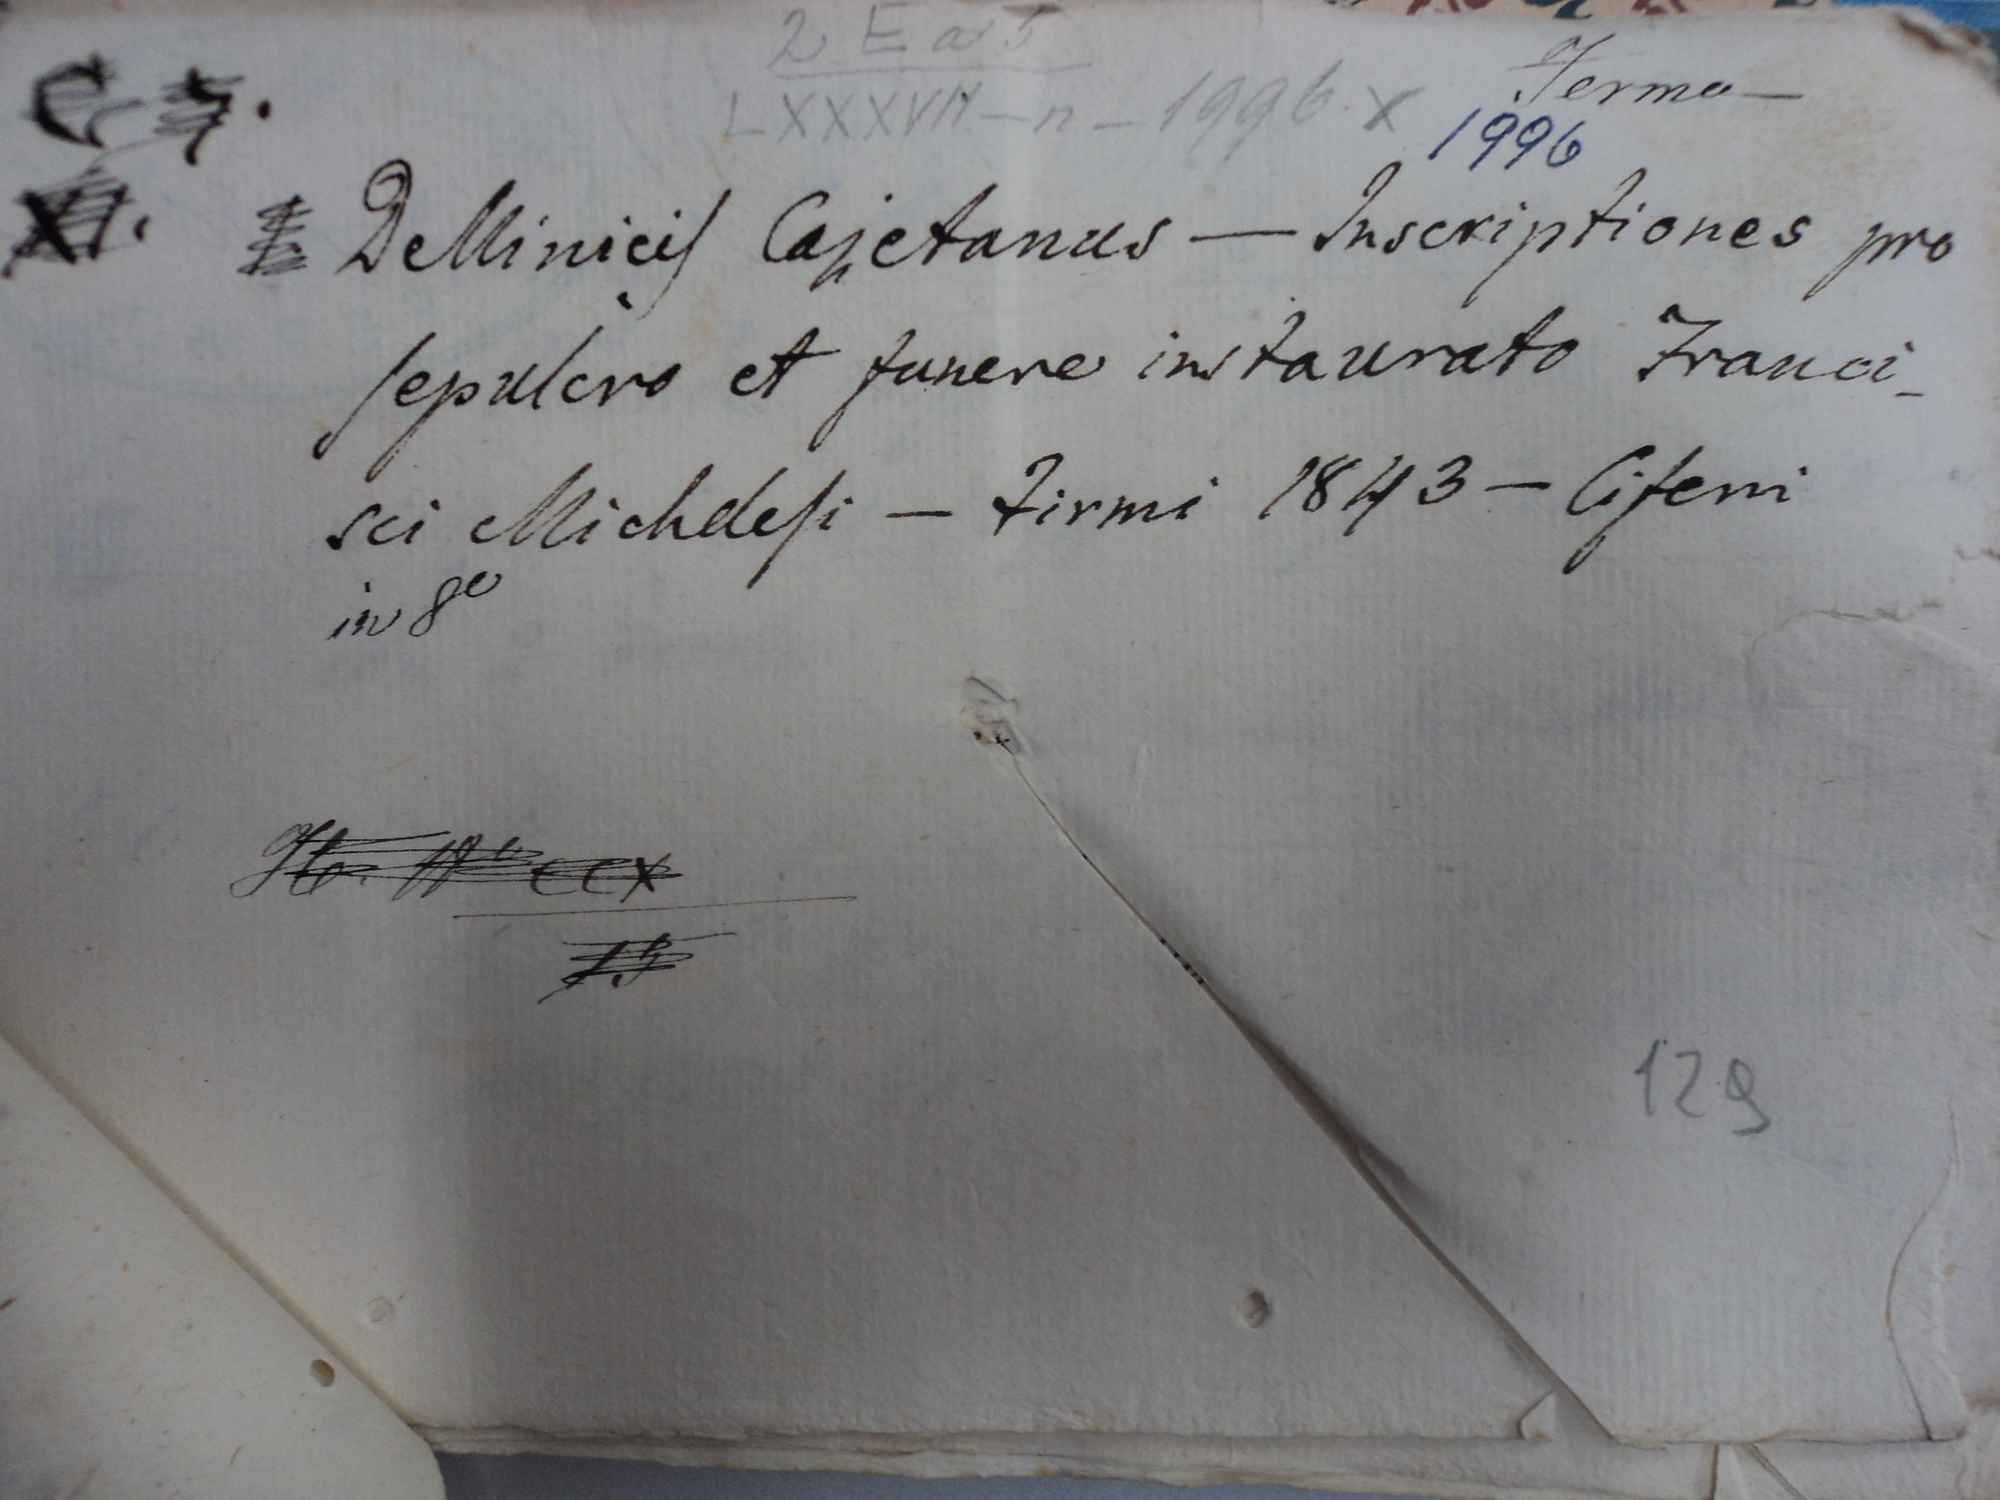 2 E a 5
LXXXVII - n - 1996 x
Fermo —
1996
De Minicis Cajetanus — Inscriptiones pro
sepulcro et funere instaurato Franci-
sci Michelesi — Firmi 1843 — Ciferri
in 8º
15
129